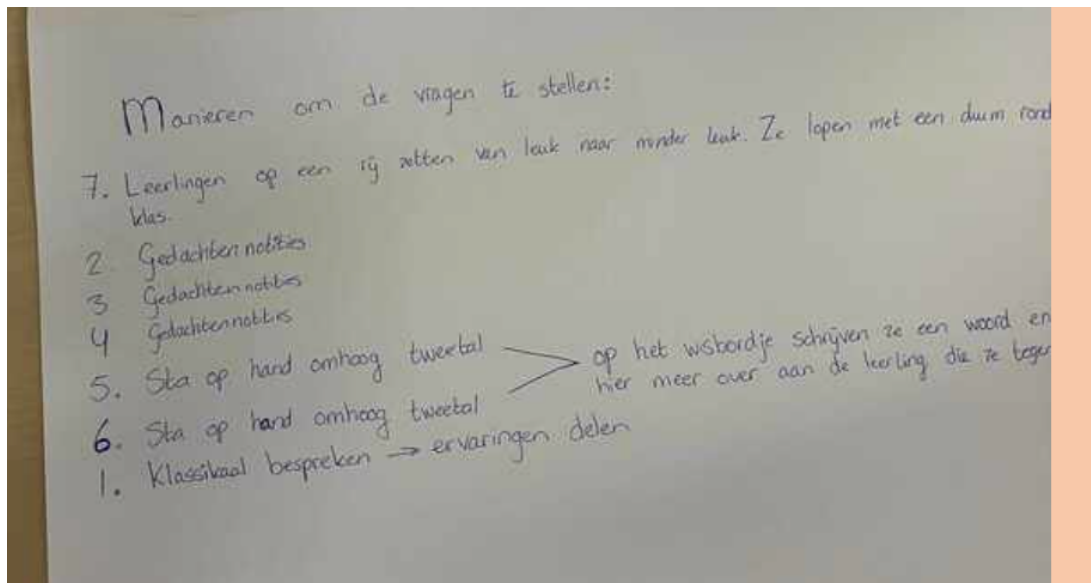 Manieren om de vragen te stellen:
7. Leerlingen op een rij zetten van leuk naar minder leuk. Ze lopen met een duim rond
klas.
2. Gedachten notities
3 Gedachtennotities
4 Gedachtennotities
5. Sta op hand omhoog tweetal
6. Sta op hand omhoog tweetal
op het wisbordje schrijven ze een woord en
hier meer over aan de leerling die ze
1. Klassikaal bespreken → ervaringen delen